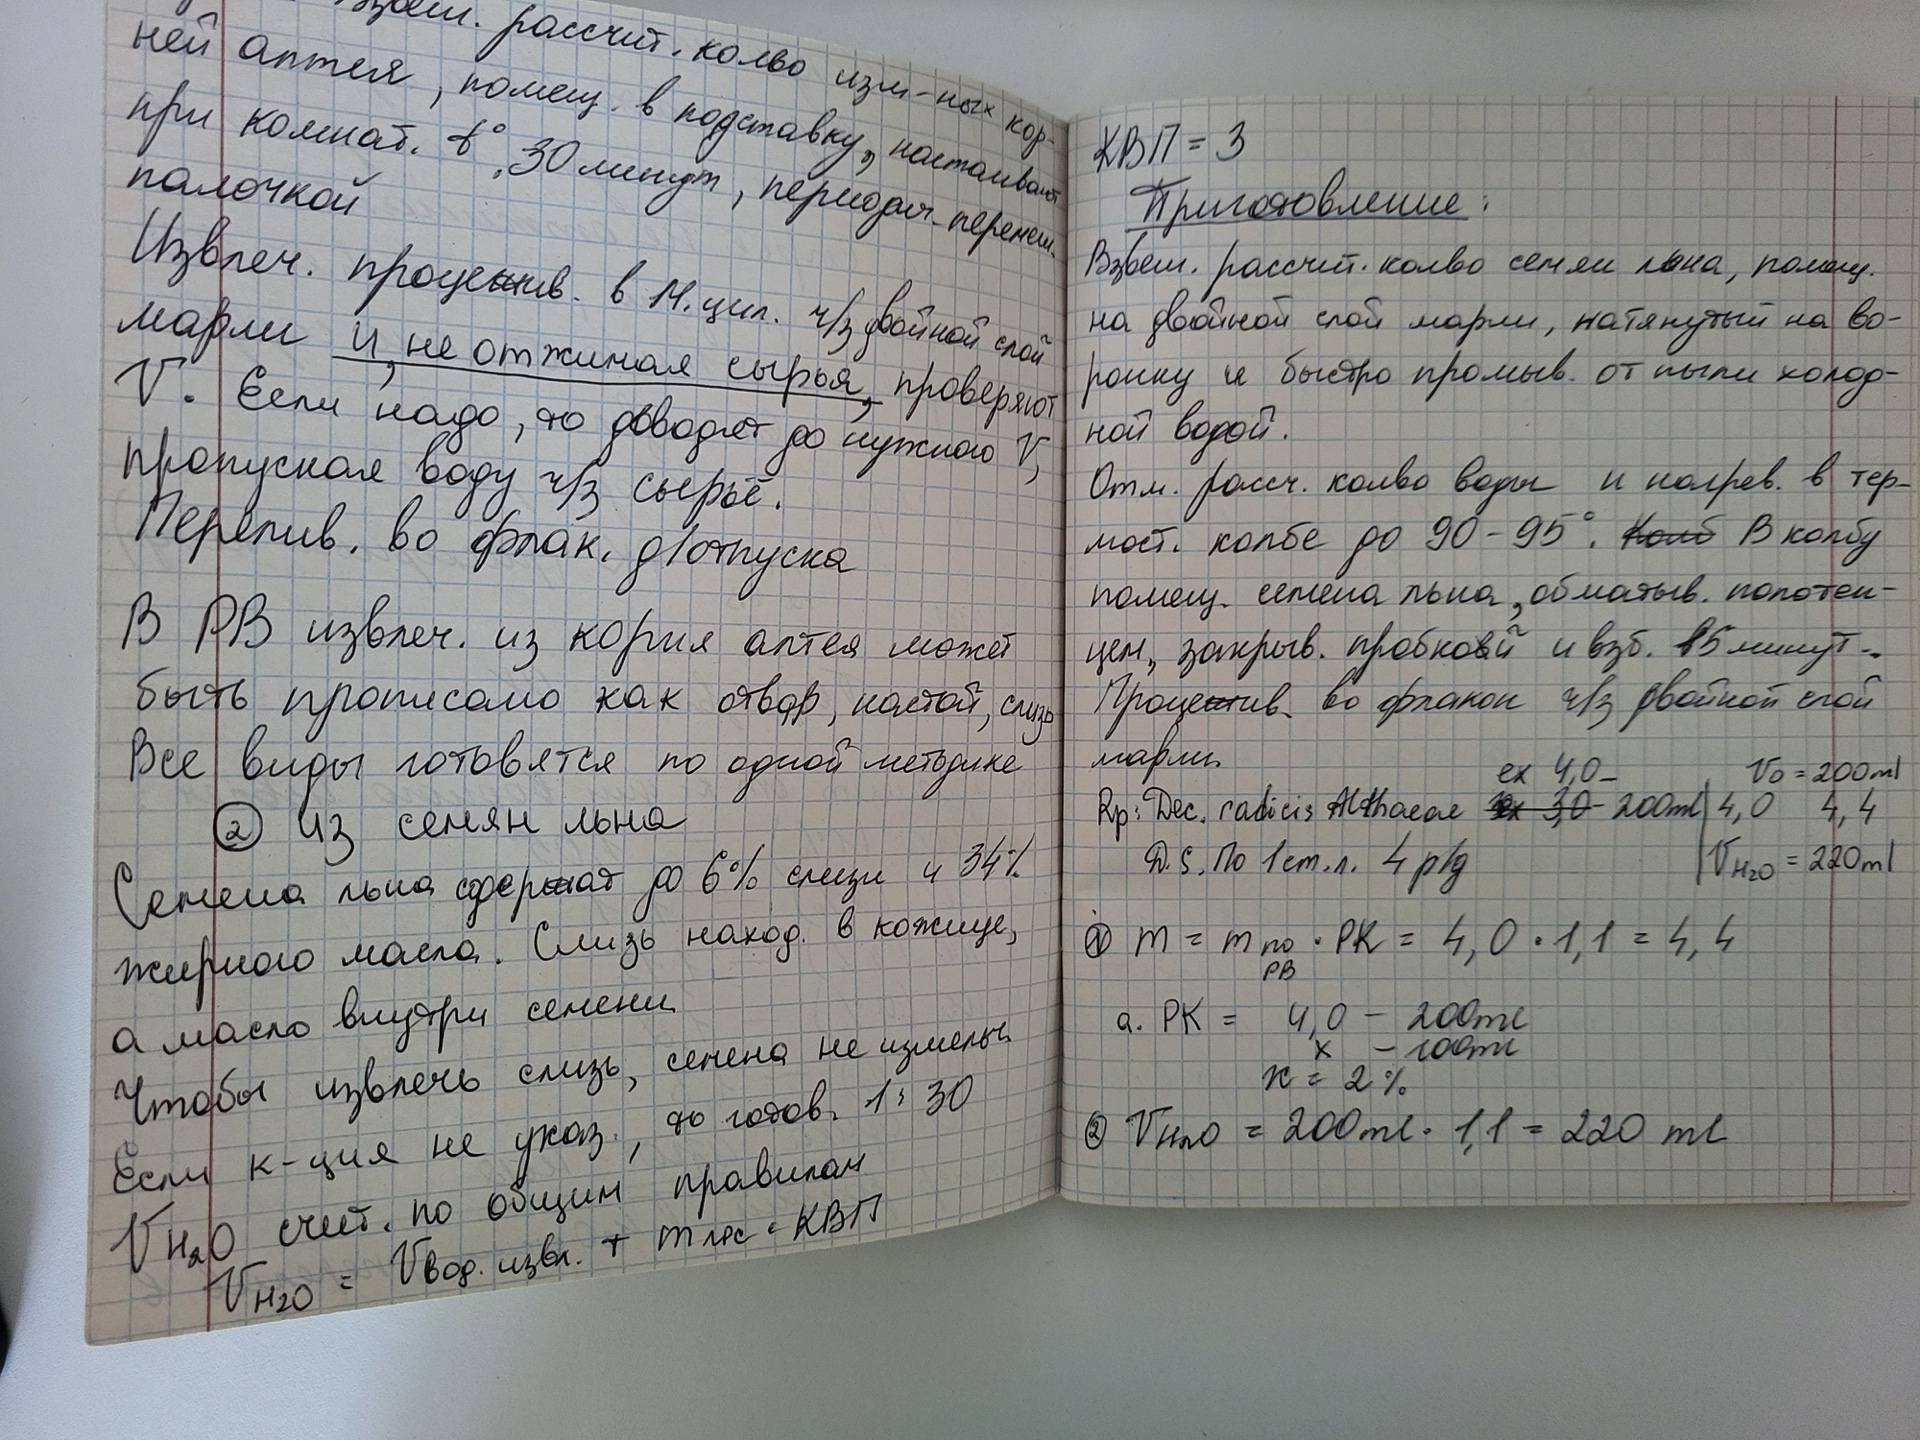 Взвеш. рассчит. колво изм-ных кор-
ней алтея, помещ. в подставку, настаивают
при комнат. t°, 30 минут, периодич. перемеш.
палочкой
Извлеч. процежив. в м. цил. ч/з двойной слой
марли и, не отжимая сырья, проверяют
V. Если надо, то доводят до нужного V,
пропуская воду ч/з сырьё.
Перелив. во флак. д/отпуска
В РВ извлеч. из корня алтея может
быть прописано как отвар, настой, слизь
Все виды готовятся по одной методике
② из семян льна
Семена льна содержат до 6% слизи и 34%
жирного масла. Слизь наход. в кожице,
а масло внутри семени
Чтобы извлечь слизь, семена не измельч.
Если к-ция не указ., то готов. 1:30
VH2O счит. по общим правилам
VH2O = Vвод. извл. + mлрс · КВП
КВП = 3
Приготовление:
Взвеш. рассчит. колво семян льна, помещ.
на двойной слой марли, натянутый на во-
ронку и быстро промыв. от пыли холод-
ной водой.
Отм. рассч. колво воды и нагрев. в тер-
мост. колбе до 90-95°. Колб В колбу
помещ. семена льна, обматыв. полотен-
цем, закрыв. пробкой и взб. 15 минут.
Процежив. во флакон ч/з двойной слой
марли.
ex 4,0 V0 = 200ml
Rp: Dec. radicis Althaeae ex 3,0 200ml | 4,0 4,4
D.S. По 1 ст. л. 4 р/д | VH2O = 220ml
① m = mпо РВ · РК = 4,0 · 1,1 = 4,4
а. РК = 4,0 - 200ml
x - 100ml
x = 2%
② VH2O = 200ml · 1,1 = 220 ml